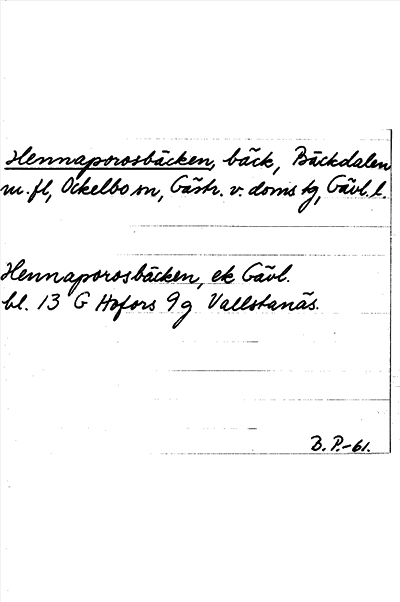 Hennaporosbäcken, bäck, Bäckdalen
m.fl, Ockelbo sn, Gästr. v. doms tg, Gävl. l.
Hennaporosbäcken, ek Gävl.
bl. 13 G Hofors 9 g Vallstanäs.
B. P.-61.